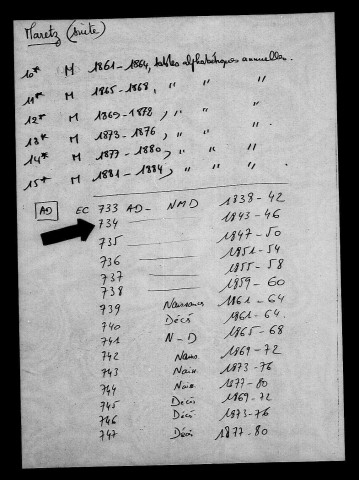 Maretz (suite)
10* M 1861-1864, tables alphabétiques annuelles.
11* M 1865-1868, " " "
12* M 1869-1872, " " "
13* M 1873-1876, " " "
14* M 1877-1880, " " "
15* M 1881-1884, " " "
AD EC 733 AD - NMD 1838-42
734 1843-46
735 1847-50
736 1851-54
737 1855-58
738 1859-60
739 Naissances 1861-64
740 Décès 1861-64.
741 N-D 1865-68
742 Naiss 1869-72
743 Naiss 1873-76
744 Naiss 1877-80
745 Décès 1869-72
746 Décès 1873-76
747 Décès 1877-80